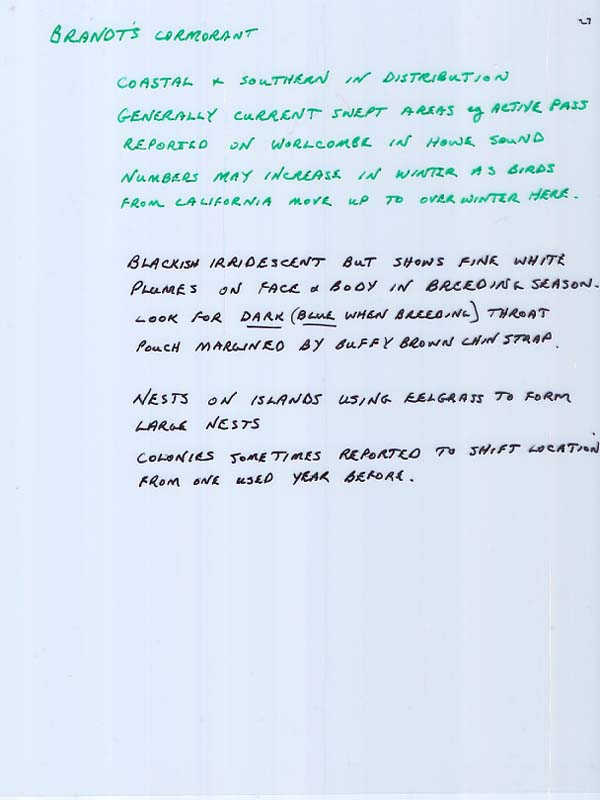 BRANDT'S CORMORANT
COASTAL & SOUTHERN IN DISTRIBUTION
GENERALLY CURRENT SWEPT AREAS eg ACTIVE PASS
REPORTED ON WORLCOMBE IN HOWE SOUND
NUMBERS MAY INCREASE IN WINTER AS BIRDS
FROM CALIFORNIA MOVE UP TO OVERWINTER HERE.
BLACKISH IRRIDESCENT BUT SHOWS FINE WHITE
PLUMES ON FACE & BODY IN BREEDING SEASON.
LOOK FOR DARK (BLUE WHEN BREEDING) THROAT
POUCH MARGINED BY BUFFY BROWN CHIN STRAP.
NESTS ON ISLANDS USING EELGRASS TO FORM
LARGE NESTS
COLONIES SOMETIMES REPORTED TO SHIFT LOCATION
FROM ONE USED YEAR BEFORE.